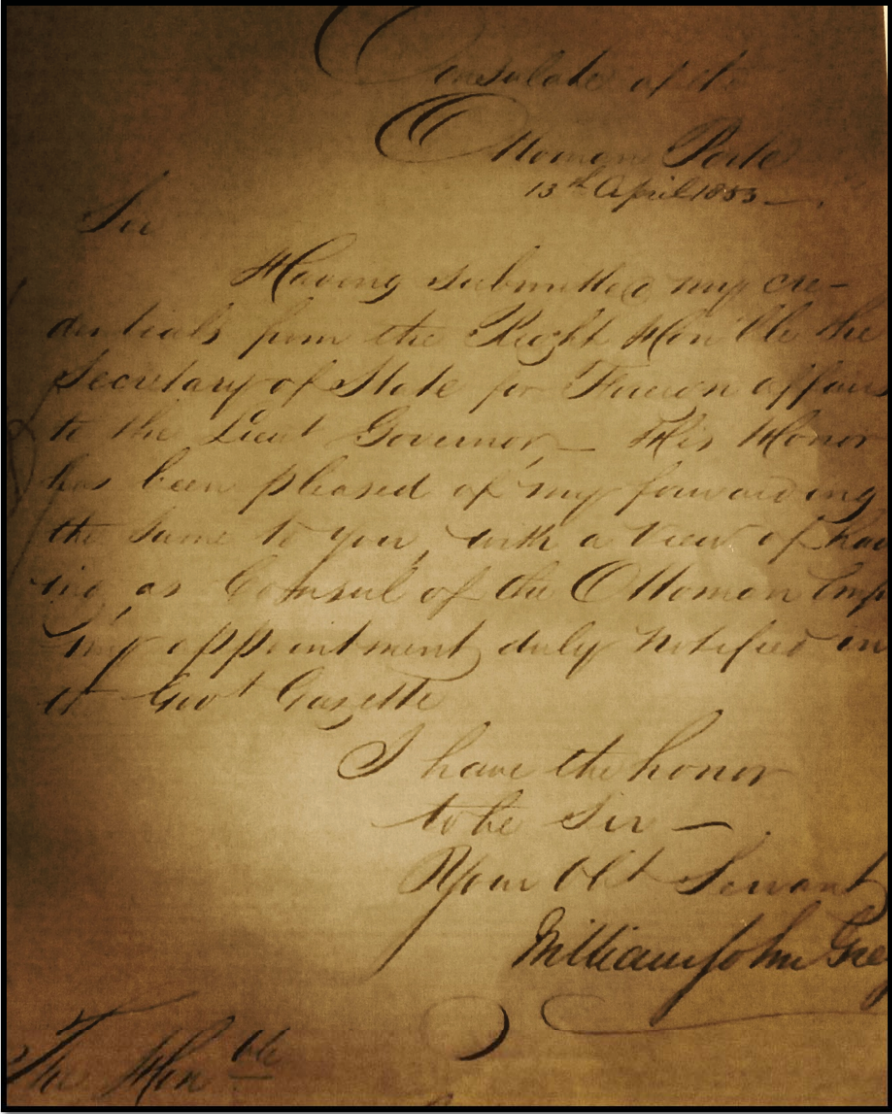 Consulate of the
Ottoman Porte
13th April 1853
Sir
Having submitted my cre-
dentials from the Right Hon'ble the
Secretary of State for Foreign Affairs
to the Lieut Governor, — His Honor
has been pleased of my forwarding
the same to you, with a view of hav
ing as Consul of the Ottoman Emp
my appointment duly notified in
Gov't Gazette
I have the honor
to be Sir —
Your Obt Servant
William John Gre
The Hon ble